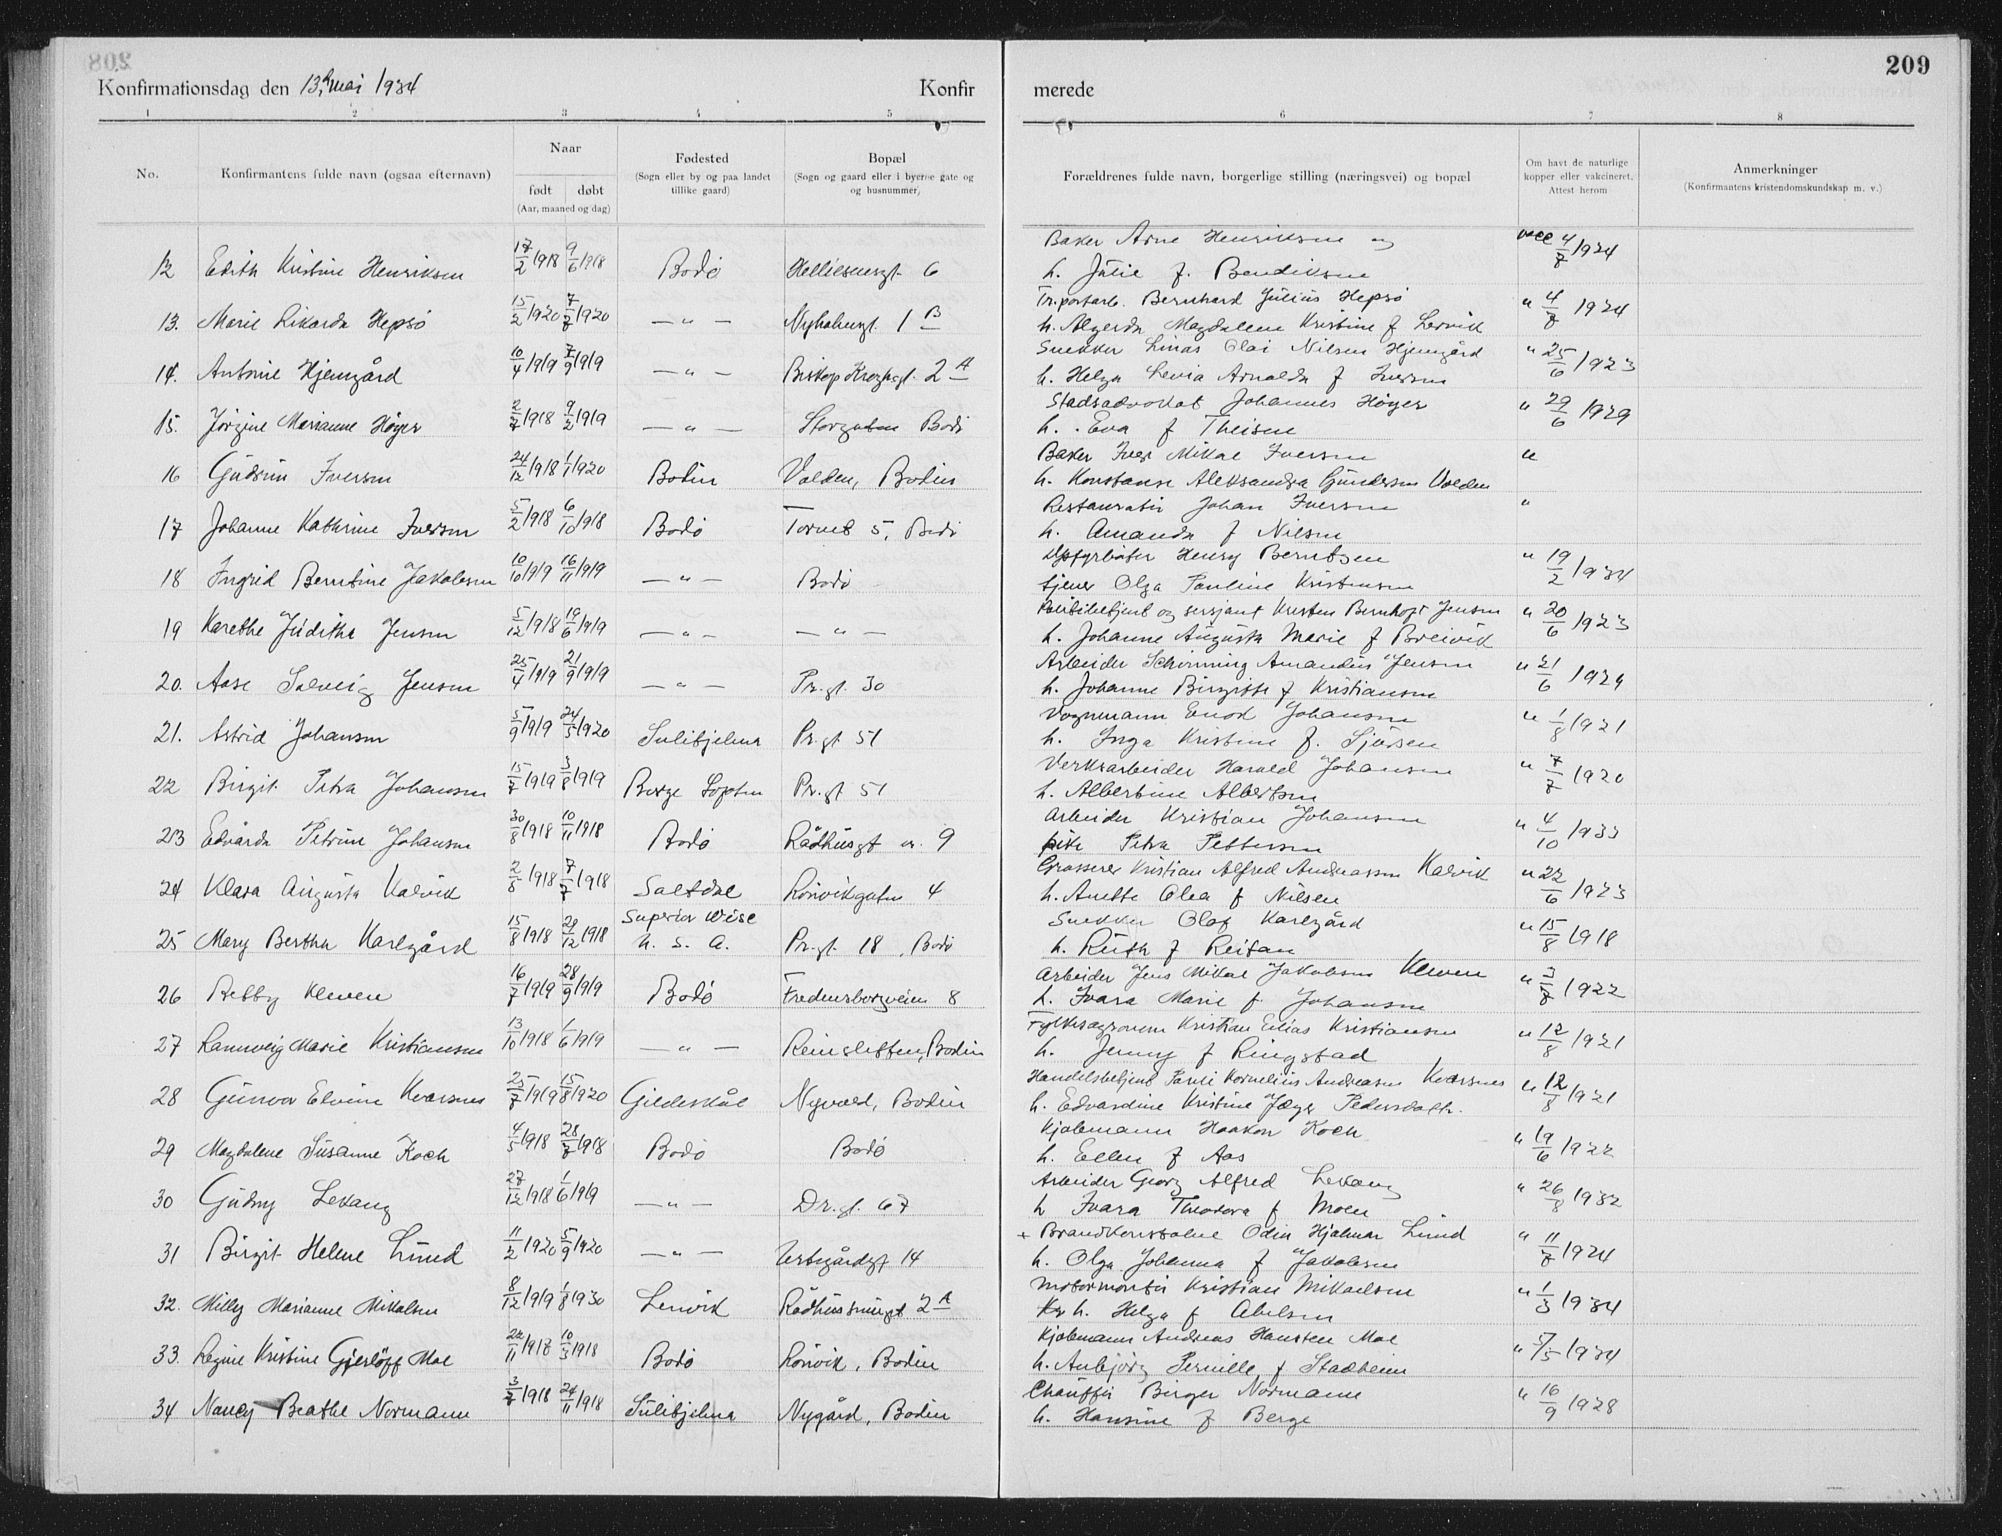 208
209
Konfirmationsdag den 13. mai 1934
Konfir
merede
1 2 3 4 5 6 7 8
No.
Konfirmantens fulde navn (ogsaa efternavn)
Naar
født døbt
(Aar, maaned og dag)
Fødested
(Sogn eller by og paa landet
tillike gaard)
Bopæl
(Sogn og gaard eller i byerne gate og
og husnummer)
Forældrenes fulde navn, borgerlige stilling (næringsvei) og bopæl
Om havt de naturlige
kopper eller vakcineret.
Attest herom
Anmerkninger
(Konfirmantens kristendomskundskap m. v.)
Baker Arne Henriksen og
12 Edith Kristine Henriksen 17/2 1918 9/6 1918 Bodø 6 vacc 4/7 1924
h. Julie f. Bendiksen
Tr.portarb. Bernhard Julius Hepsø
13. Marie Rikarda Hepsø 15/2 1920 7/7 1920 — " — 1 B " 4/7 1924
h. Algerda Magdalene Kristine f Lervik
Snekker Linas Olai Nilsen Hjemgård
14. Antonie Hjemgård 10/4 1919 7/9 1919 — " — Biskop Kroghsgt. 2 A " 25/6 1923
h. Helga Levia Arnalda f Iversen
Stadsadvokat Johannes Høyer
15. Jörgine Marianne Höyer 2/7 1918 9/2 1919 — " — Storgaten Bodö " 29/6 1929
h. Eva f Theisen
Baker Iver Mikal Iversen
16 Gudrun Iversen 24/12 1918 1/1 1920 Bodin Volden, Bodin "
h. Konstanse Aleksandra Gundersen Volden
Restauratør Johan Iversen
17 Johanne Kathrine Iversen 5/2 1918 6/10 1918 Bodö Torvet 5, Bodö "
h. Amanda f Nilsen
Opfyrböter Henry Berntsen
18 Ingrid Berntine Jakobsen 10/10 1919 16/11 1919 — " — Bodö " 19/2 1934
tjener Olga Pauline Kristensen
Politibetjent og sersjant Kristen Bernhoft Jensen
19 Karethe Juditha Jensen 5/12 1918 19/6 1919 — " — — " — " 20/6 1923
h. Johanne Augusta Marie f Breivik
Arbeider Schönning Amandus Jensen
20. Aase Solveig Jensen 25/4 1919 21/9 1919 — " — Pr.gt. 30 " 21/6 1924
h. Johanne Birgitte f Kristiansen
Vognmann Enok Johansen
21. Astrid Johansen 5/9 1919 24/5 1920 Sulitjelma Pr.gt 51 " 1/8 1921
h. Inga Kristine f.
Verksarbeider Harald Johansen
22 Birgit Petra Johansen 15/7 1919 3/8 1919 Pr.gt 51 " 7/7 1920
h. Albertine Albertsen
Arbeider Kristian Johansen
23 Edvarda Petrine Johansen 30/8 1918 10/11 1918 Bodö Rådhusgt n. 9 " 4/10 1933
pike Petra Pettersen
Grosserer Kristian Alfred Andreassen Kalvik
24 Klara Augusta Kalvik 2/8 1918 7/7 1918 Saltdal Rönvikgaten 4 " 22/6 1923
h. Anette Olea f Nilsen
Snekker Olaf Karlgård
25 Mary Bertha Karlgård 15/8 1918 29/12 1918 Superior Wisc U. S. A. Pr.gt. 18, Bodö " 15/8 1918
h. Ruth f Reitan
Arbeider Jens Mikal Jakobsen Kleven
26 Rebby Kleven 16/7 1919 28/9 1919 Bodö Fredensborgveien 8 " 3/7 1922
h. Ivara Marie f. Johansen
Fylkesagronom Kristian Elias Kristiansen
27 Rannveig Marie Kristiansen 13/10 1918 1/6 1919 — " — Reinsletten, Bodin " 12/8 1921
h. Jenny f Ringstad
Handelsbetjent Parvi Kornelius Andreasen Kvarsnes
28 Gunvor Elvine Kvarsnes 25/7 1919 15/8 1920 Gildeskål Nyvold, Bodin " 12/8 1921
h. Edvardine Kristine Jæger Pedersdatr.
Kjøbmann Haakon Koch
29 Magdalene Susanne Koch 4/5 1918 28/7 1918 Bodö Bodö " 19/6 1922
h. Ellen f Aas
Arbeider Georg Alfred Lekang
30 Gudny Lekang 27/12 1918 1/6 1919 — " — Dr.gt. 67 " 26/8 1932
h Ivara Theodora f Moen
+ Brandkonstabel Odin Hjalmar Lund
31 Birgit Helene Lund 11/2 1920 5/9 1920 — " — 14 " 11/7 1924
h. Olga Johanna f Jakobsen
Motormontör Kristian Mikaelsen
32. Milly Marianne Mikalsen 8/12 1919 1/8 1930 Lenvik 2 A " 1/3 1934
h. Helga f Abelsen
Kjøbmann Andreas Hansteen Moe
33. Regine Kristine Gjerlöff Moe 22/11 1917 10/3 1918 Bodö Rönvik, Bodin " 5/5 1934
h. Anbjörg Pernille f Stadheim
Chaufför Birger Normann
34 Nancy Beathe Normann 3/7 1918 24/11 1918 Sulitjelma Nygård, Bodin " 16/9 1928
h. Hansine f Berge